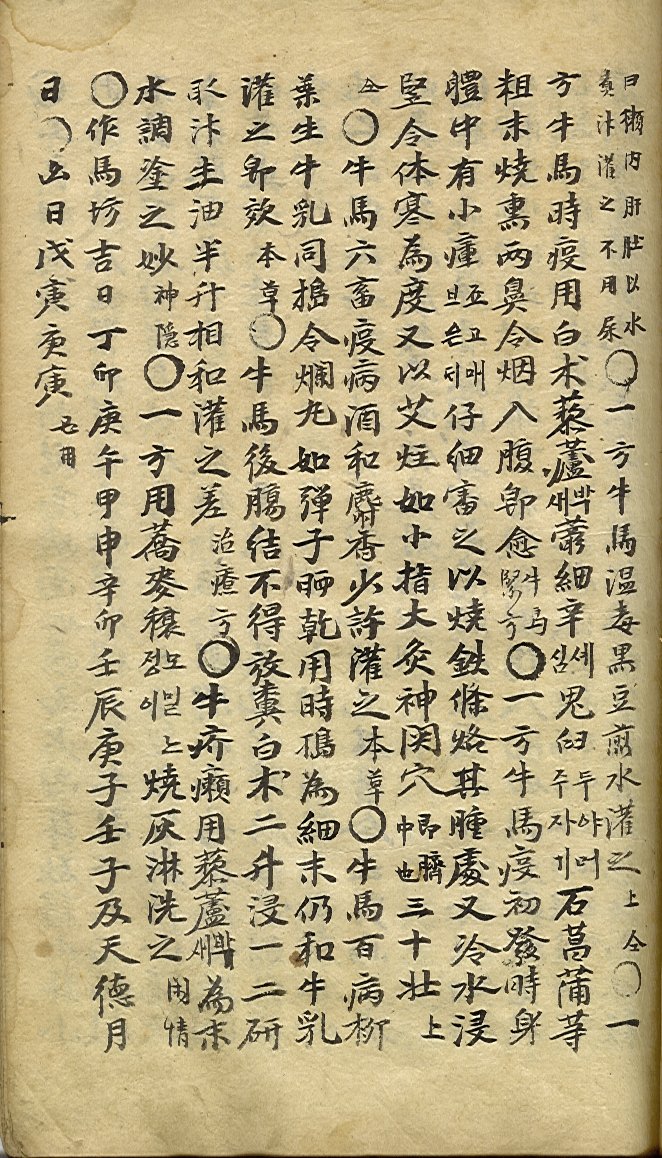 日獺內肝肚以水煮汁灌之不用尿○一方牛馬温毒黑豆煎水灌之上仝○一
方牛馬時疫用白术藜蘆박새細辛셰심鬼臼두야머주자기石菖蒲等
粗末燒熏兩鼻令烟入腹即愈牛馬緊方○一方牛馬疫初發時身
體中有小瘇죠고매브은듸仔細審之以燒鉄條烙其腫處又冷水浸
堅令体寒為度又以艾炷如小指大灸神闕穴即臍中也三十壮上
仝○牛馬六畜疫病酒和麝香少許灌之本草○牛馬百病柳
葉生牛乳同搗令爛丸如弹子晒乾用時搗為細末仍和牛乳
灌之即効本草○牛馬後膓结不得放糞白术二升浸一二研
取汁生油半升相和灌之差治療方○牛疥癩用藜蘆박새為末
水調塗之妙神隱○一方用蕎麥穣모밀느정이燒灰淋洗之閑情
○作馬坊吉日丁卯庚午甲申辛卯壬辰庚子壬子及天德月
日○凶日戊寅庚寅忌用